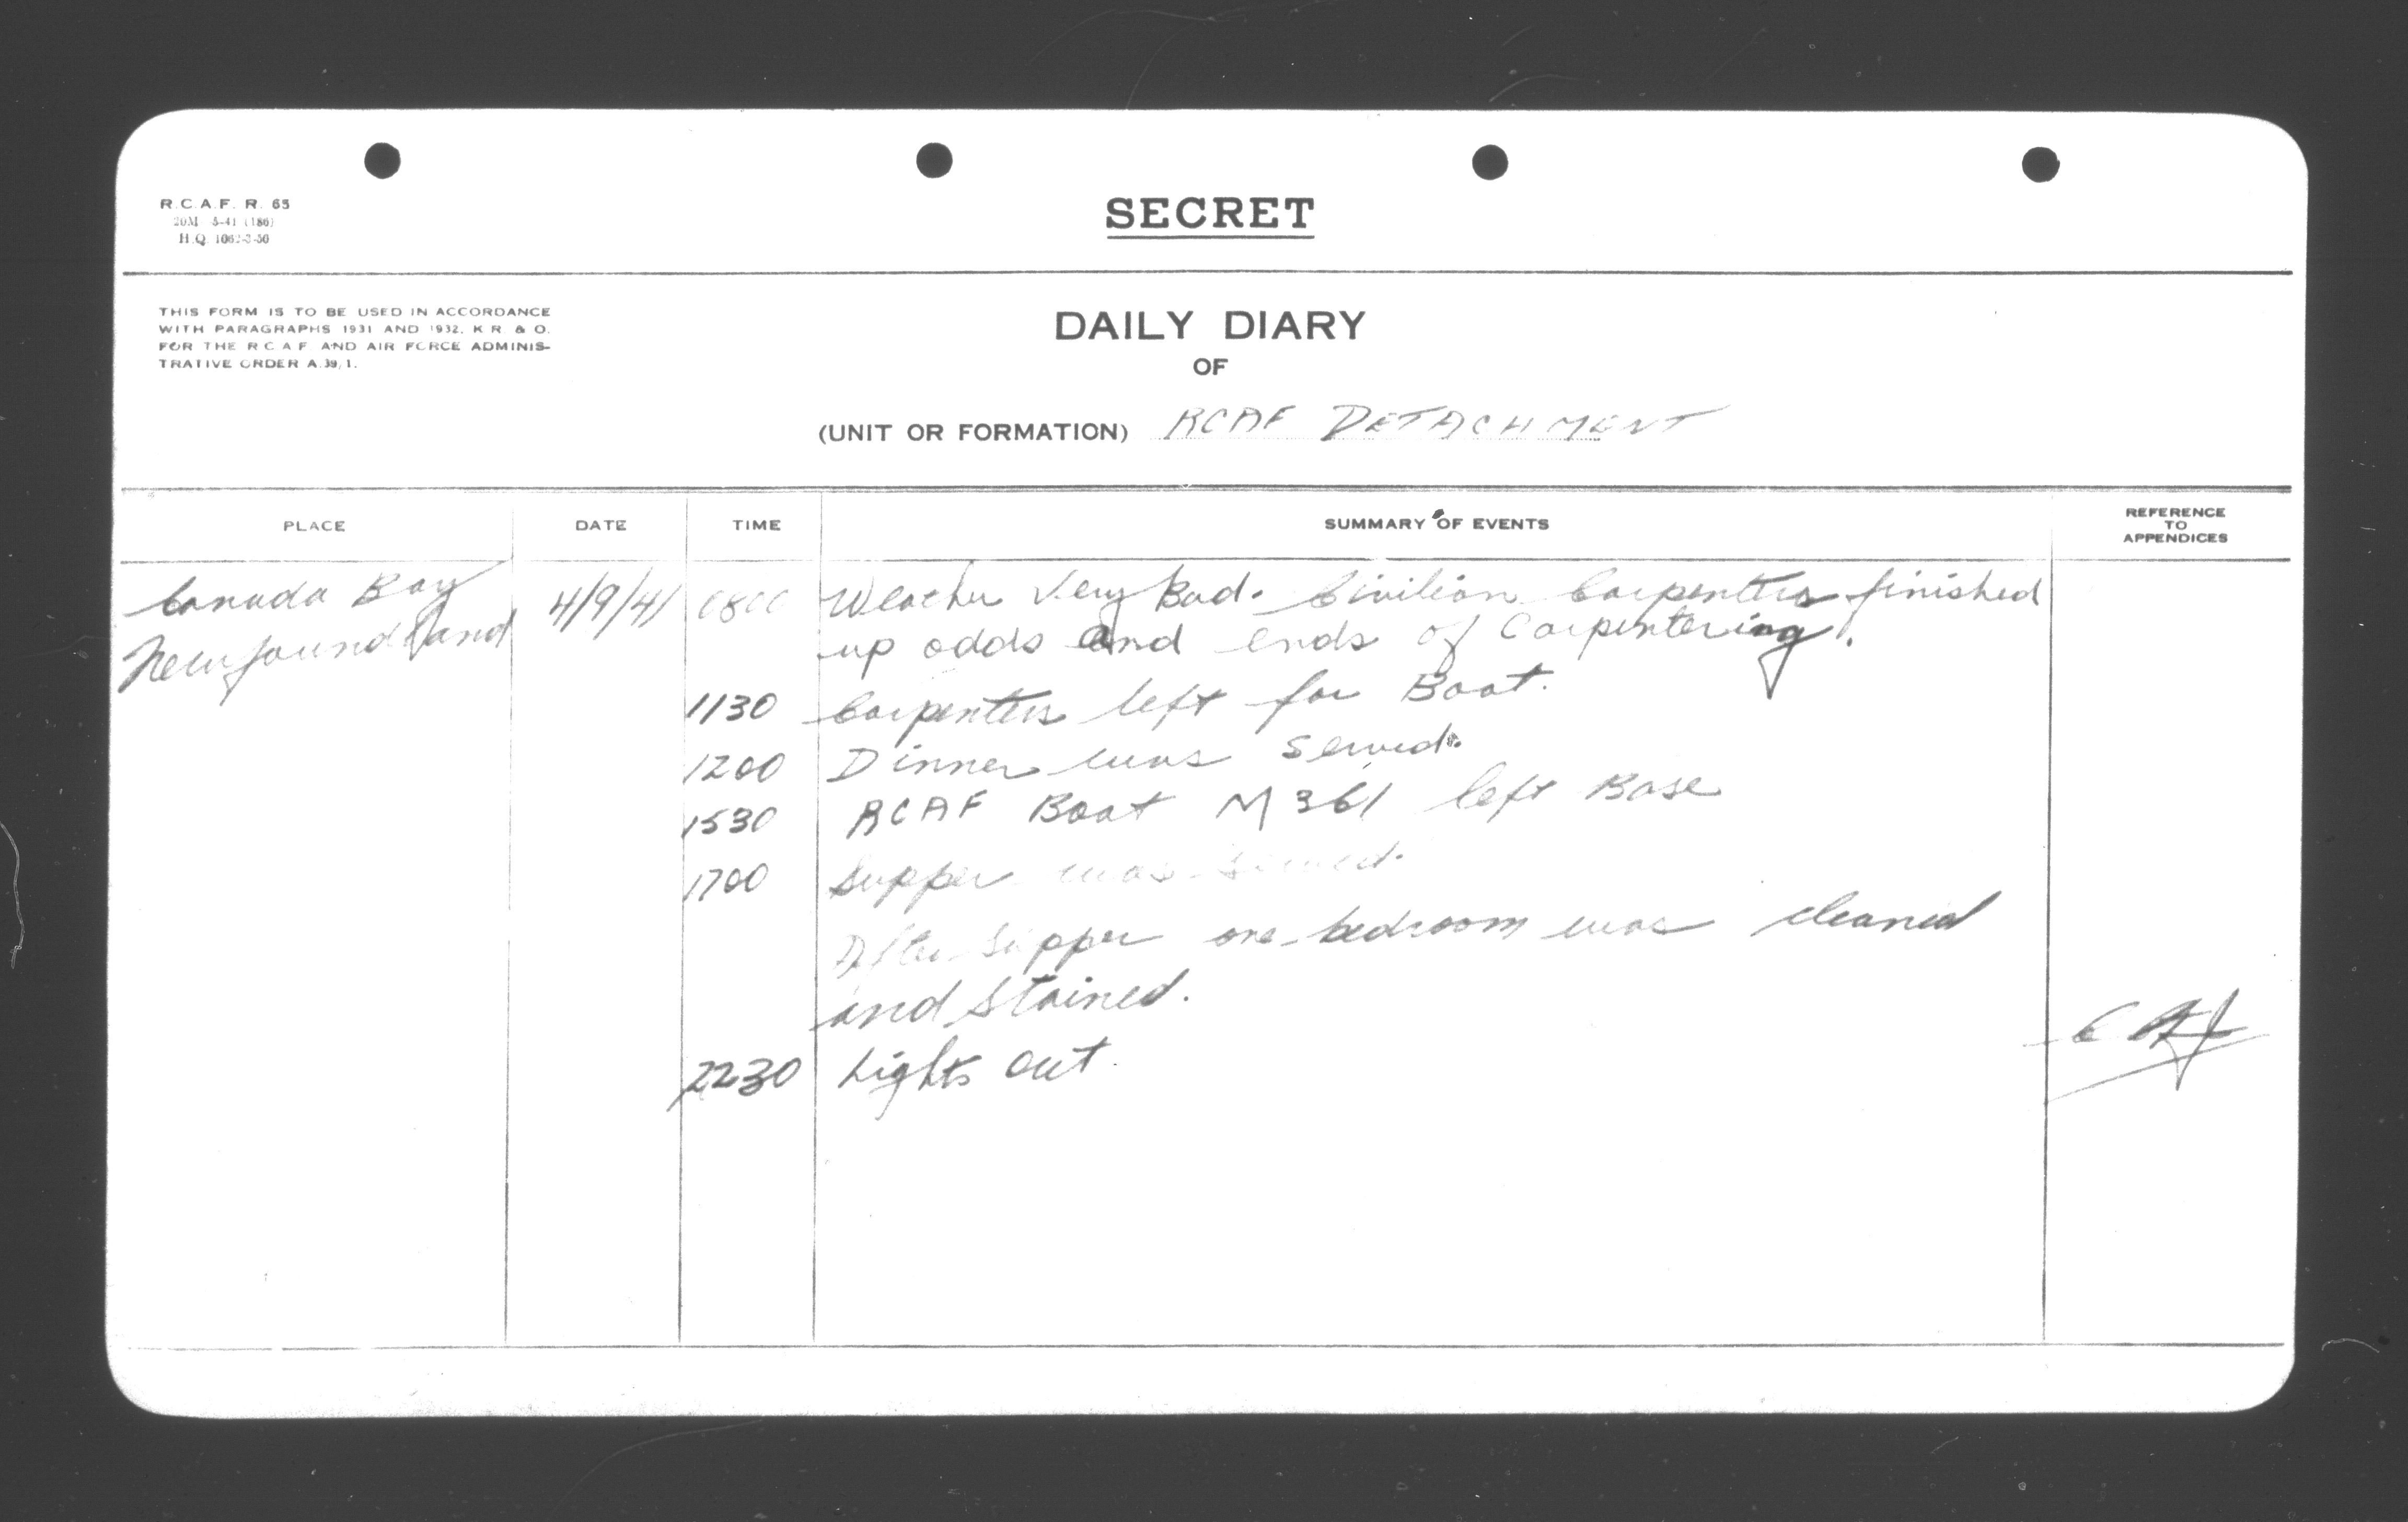 R.C.A.F. R. 65
20M 5-41 (186)
H.Q. 1062-3-50
SECRET
THIS FORM IS TO BE USED IN ACCORDANCE
WITH PARAGRAPHS 1931 AND 1932, K.R. & O.
FOR THE R.C.A.F. AND AIR FORCE ADMINIS-
TRATIVE ORDER A.39/1.
DAILY DIARY
OF
(UNIT OR FORMATION) RCAF DETACHMENT
PLACE DATE TIME SUMMARY OF EVENTS REFERENCE TO APPENDICES
Canada Bay 4/9/41 0800 Weather Very Bad. Civilian Carpenters finished
Newfoundland up odds and ends of Carpentering.
1130 Carpenters left for Boat.
1200 Dinner was served.
1530 RCAF Boat M361 left Base
1700 Supper was served.
After Supper one bedroom was cleaned
and stained.
2230 Lights out.